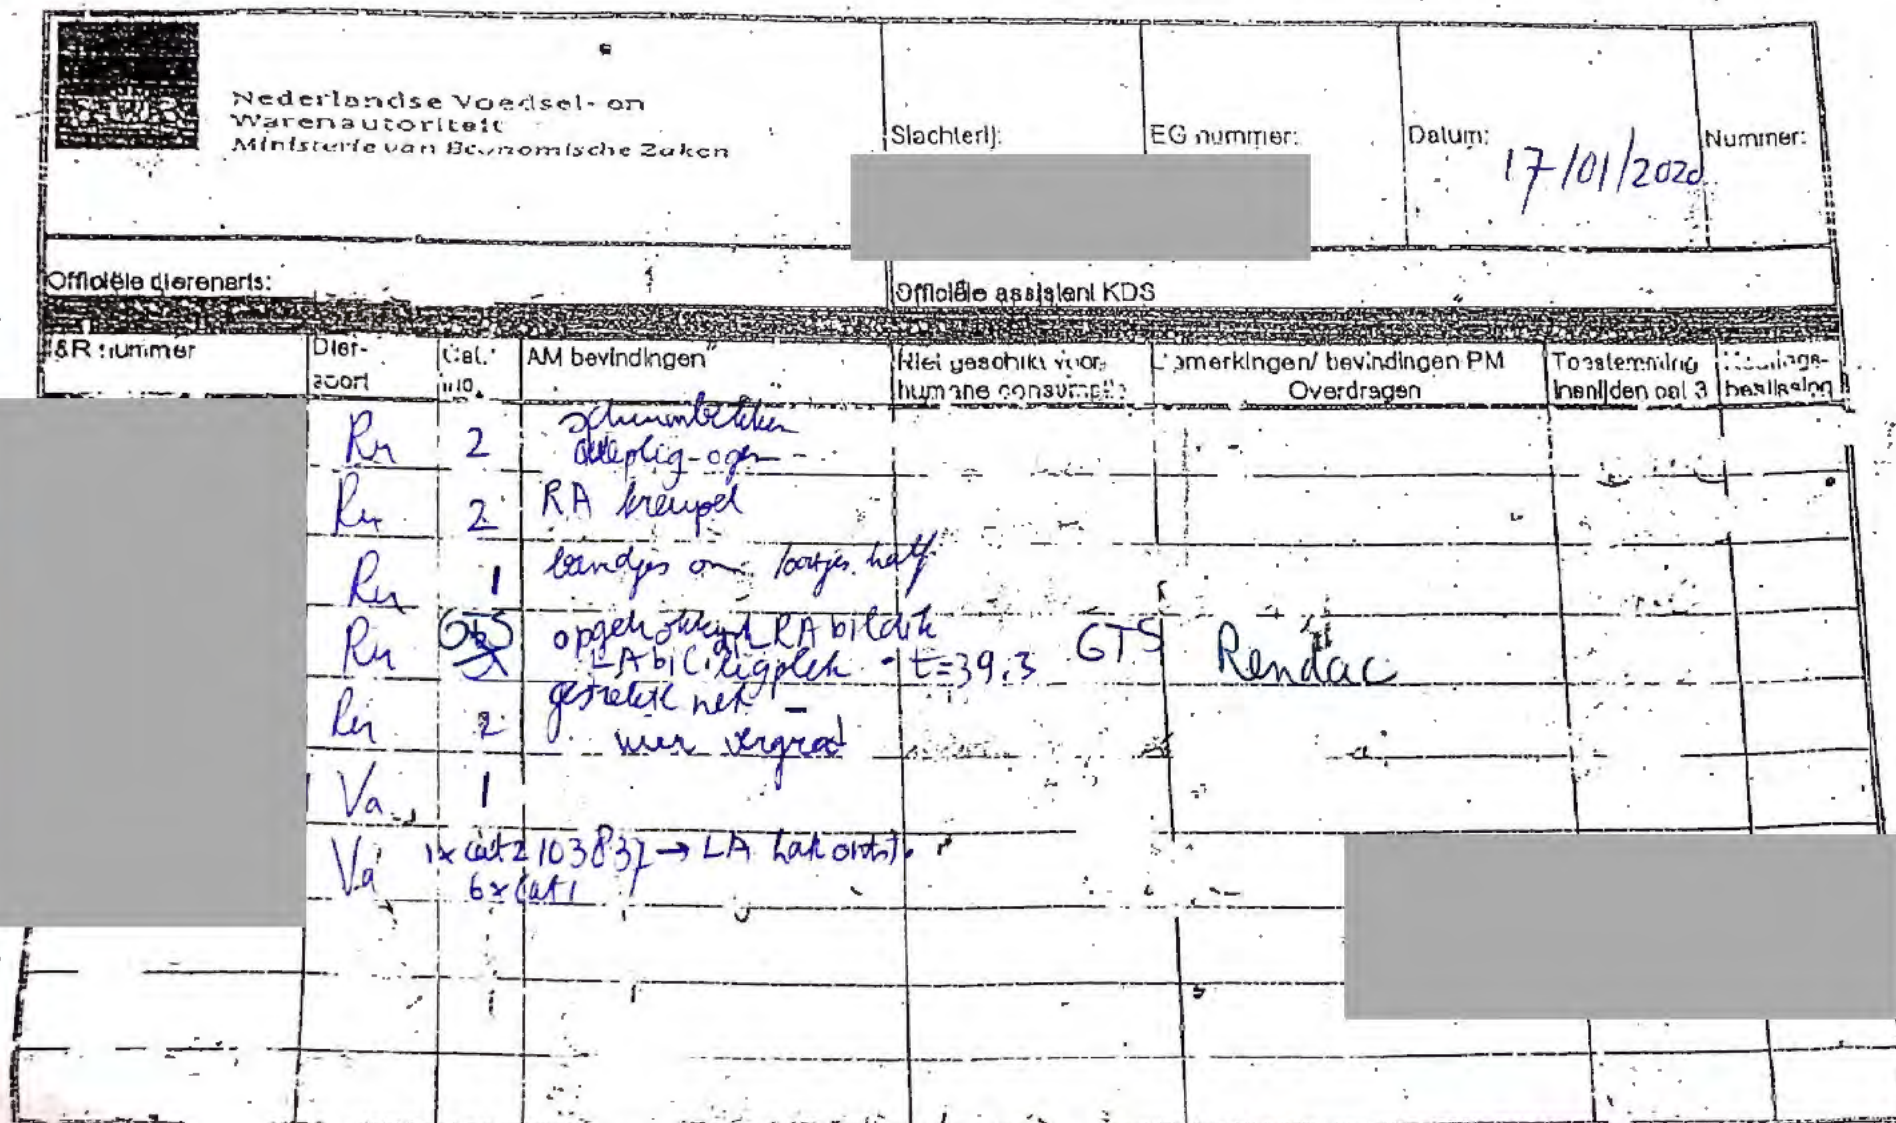 Nederlandse Voedsel- en
Warenautoriteit
Ministerie van Economische Zaken
Slachterij:
EG nummer:
Datum: 17/01/2020
Nummer:
Officiële dierenarts:
Officiële assistent KDS
I&R nummer
Dier-
soort
Cat.
AM bevindingen
Niet geschikt voor
humane consumptie
Opmerkingen/ bevindingen PM
Overdragen
Toestemming
insnijden cat 3
Keurings-
beslissing
Ru 2 schuimbekken
ogen
Ru 2 RA kreupel
Ru 1 bandjes om half
Ru GTS LA RA bil dik
LA bil ligplek - t=39.3 GTS Rendac
Ru 2 gestrekte nek -
nier vergroot
Va 1
Va 1x cat 2 103837 → LA hak ontst.
6x cat 1